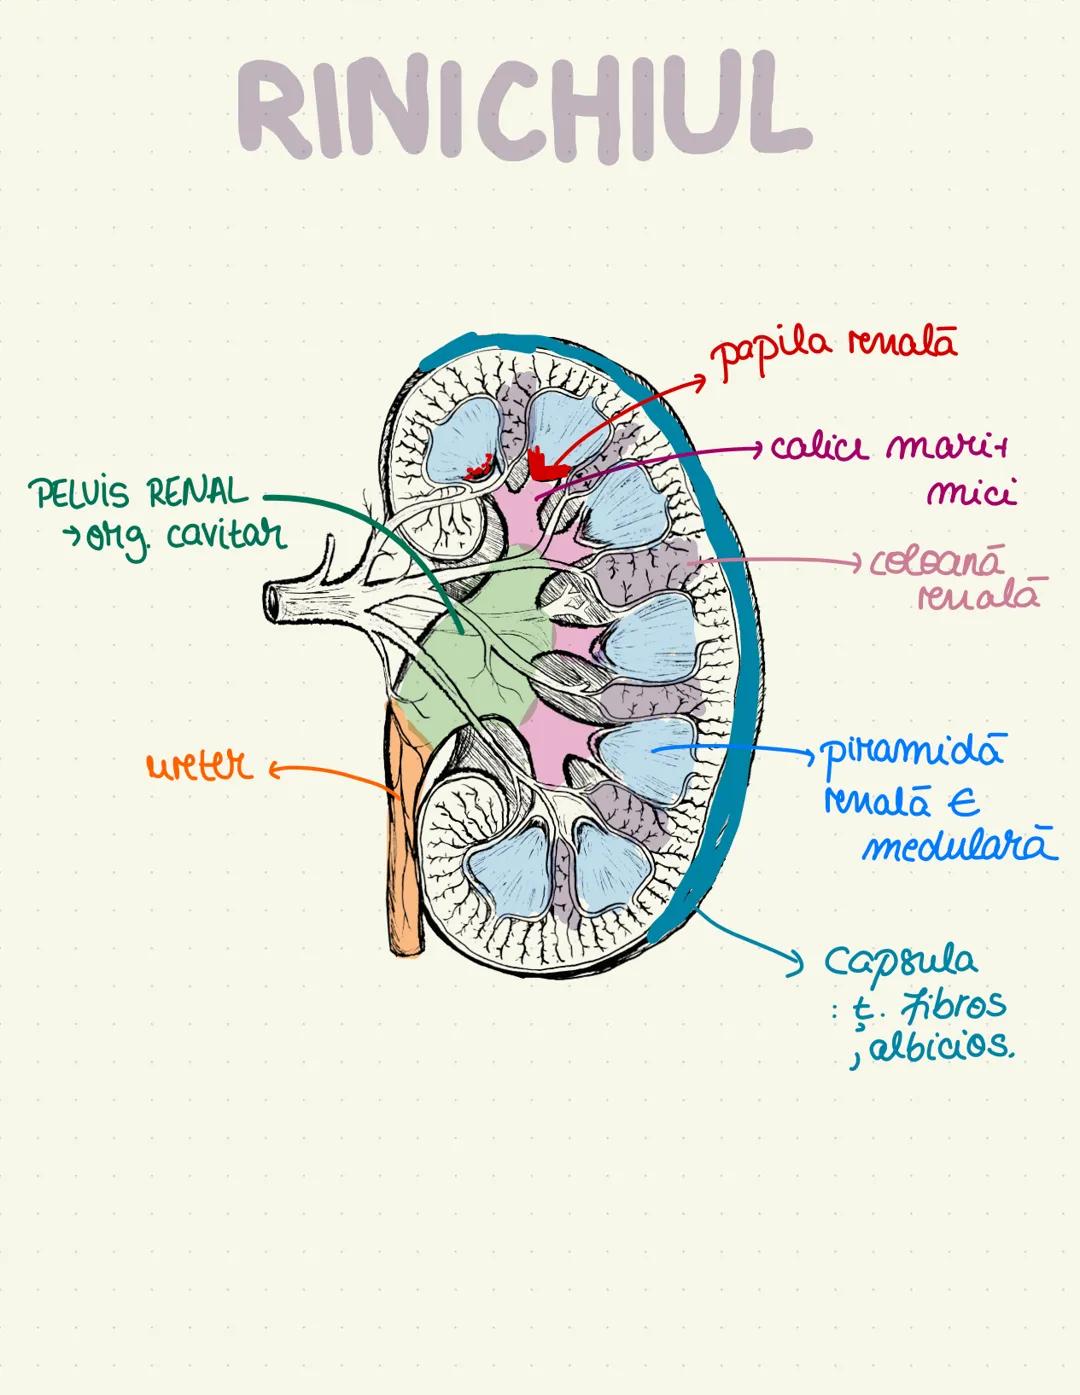 RINICHIUL
papila renală
calici mari+
mici
PELVIS RENAL
→org. cavitar
coloană
renală
ureter
piramidă
renală ∈
medulară
capsula
: ț. fibros
, albicios.